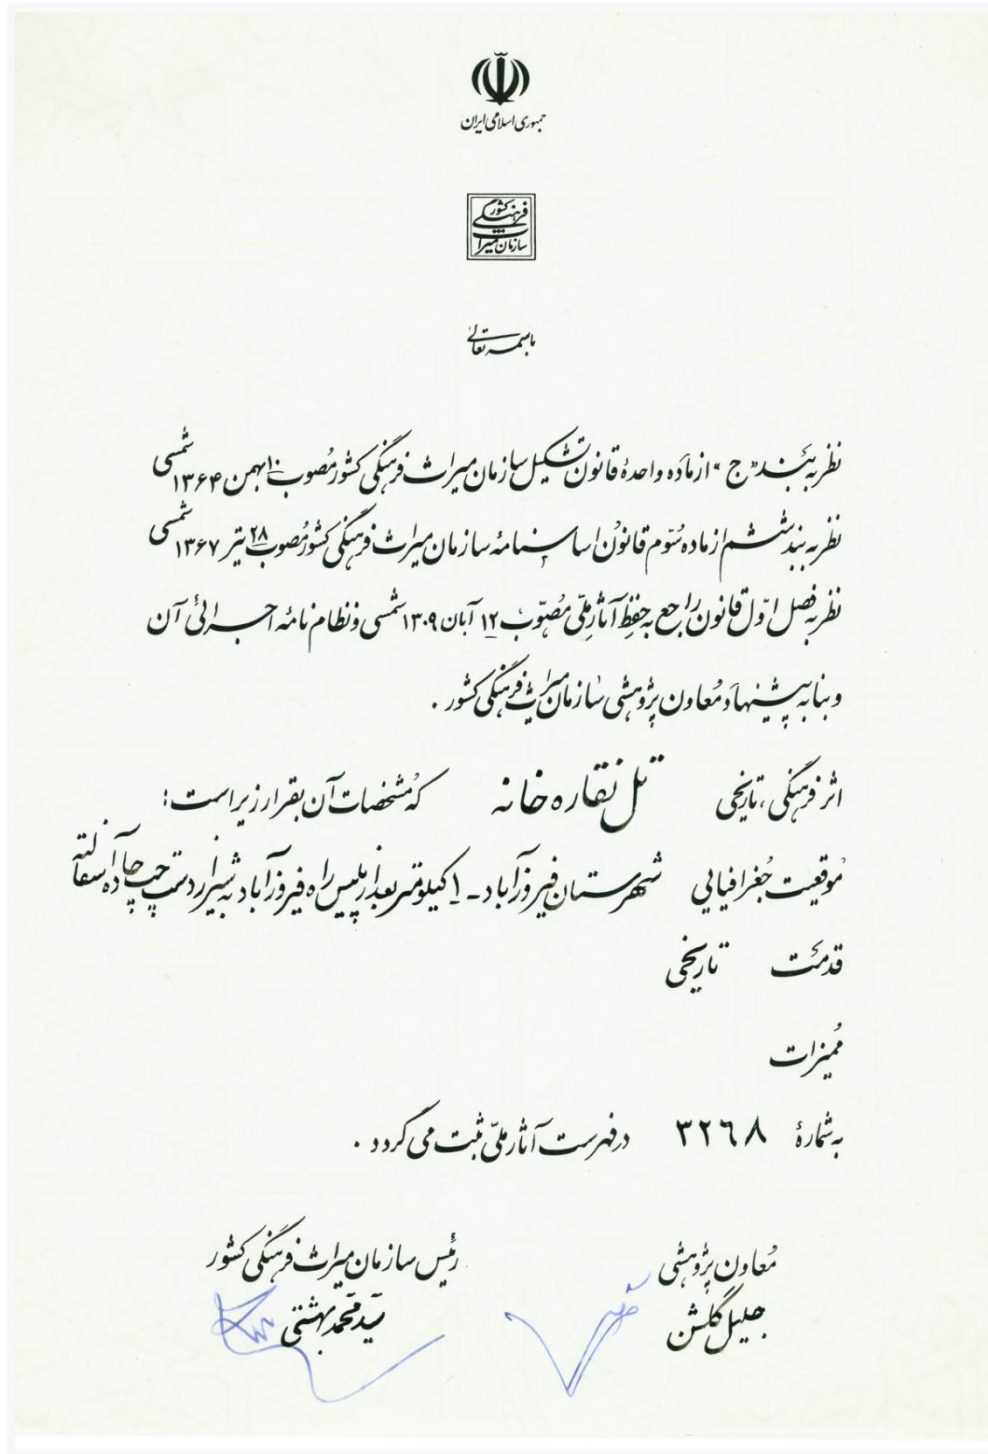 جمهوری اسلامی ایران
سازمان میراث فرهنگی کشور
باسمه تعالی
نظر به بند "ج" از ماده واحدهٔ قانون تشکیل سازمان میراث فرهنگی کشور مُصوب ۱۰ بهمن ۱۳۶۴ شمسی
نظر به بند ششم از ماده سّوم قانون اساسنامهٔ سازمان میراث فرهنگی کشور مُصوب ۲۸ تیر ۱۳۶۷ شمسی
نظر به فصل اوّل قانون راجع به حفظ آثار ملّی مُصوّب ۱۲ آبان ۱۳۰۹ شمسی و نظام نامهٔ اجرائی آن
و بنا به پیشنهاد مُعاون پژوهشی سازمان میراث فرهنگی کشور .
اثر فرهنگی ، تاریخی تل نقاره خانه که مُشخصات آن بقرار زیر است :
مُوقعیت جُغرافیایی شهرستان فیروزآباد - ۱ کیلومتر بعد از پلیس راه فیروزآباد به شیراز دست چپ جاده آسفالته
قدمت تاریخی
مُمیزات
به شمارهٔ ۳۲٦۸ در فهرست آثار ملّی ثبت می گردد .
مُعاون پژوهشی
جلیل گلشن
رئیس سازمان میراث فرهنگی کشور
سیّد محمّد بهشتی